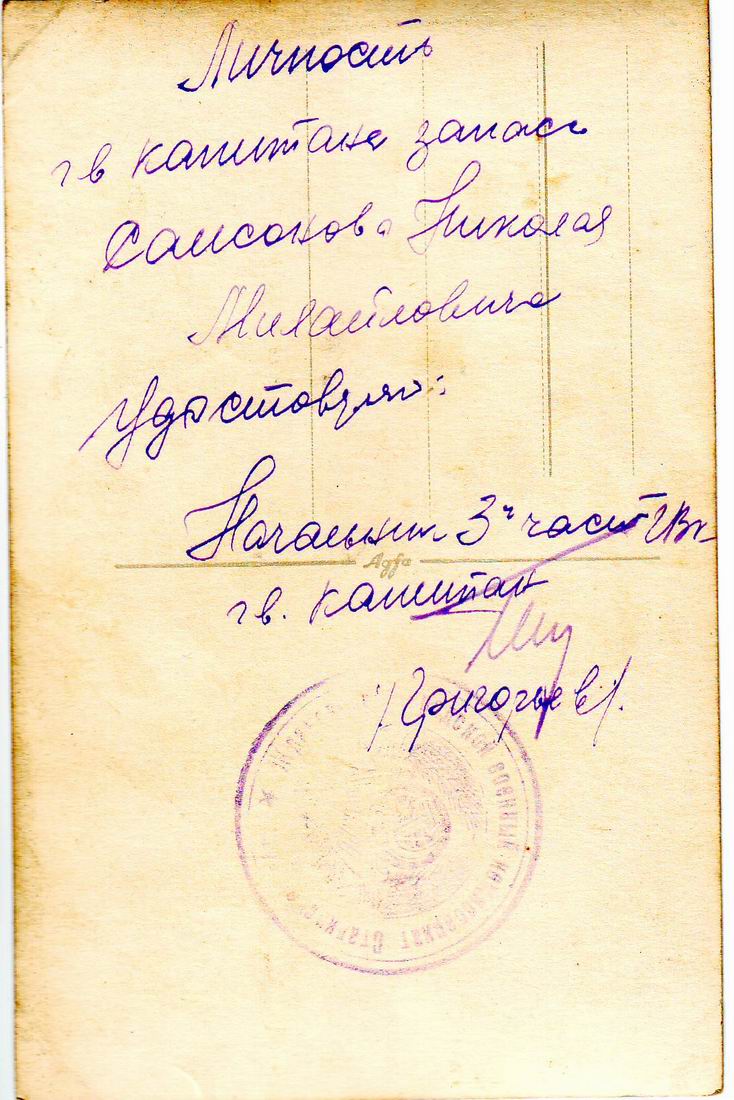 Личность
гв капитана запаса
Самсонова Николая
Михайловича
удостоверяю:
Начальник 3й части ГВК
Agfa
гв. капитан
/Григорьев/.
военный комиссариат